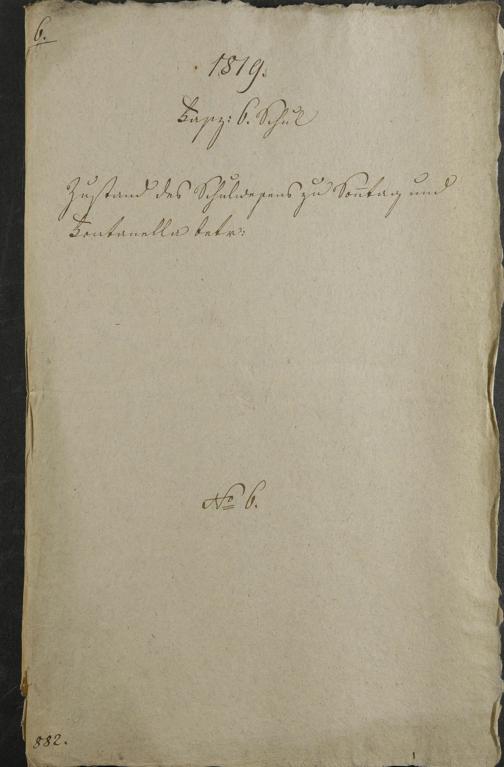 6.
1819.
Fasz: 6. Schul
Zustand des Schulwesens zu Sonntag und
Fontanella betr:
No 6.
882.